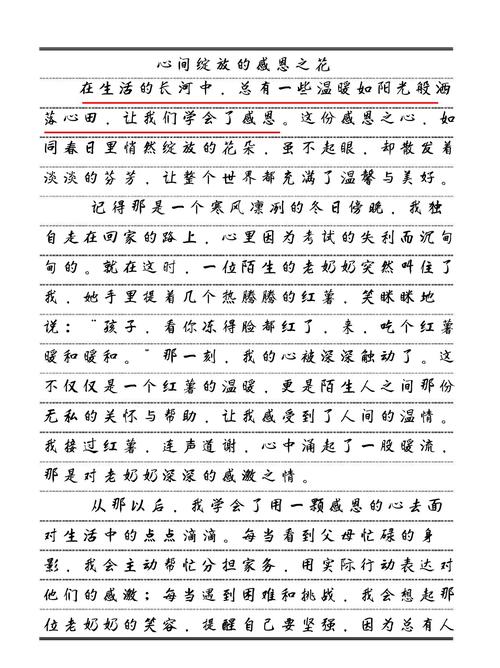 心间绽放的感恩之花
在生活的长河中，总有一些温暖如阳光般洒
落心田，让我们学会了感恩。这份感恩之心，如
同春日里悄然绽放的花朵，虽不起眼，却散发着
淡淡的芬芳，让整个世界都充满了温馨与美好。
记得那是一个寒风凛冽的冬日傍晚，我独
自走在回家的路上，心里因为考试的失利而沉甸
甸的。就在这时，一位陌生的老奶奶突然叫住了
我，她手里提着几个热腾腾的红薯，笑眯眯地
说：“孩子，看你冻得脸都红了，来，吃个红薯
暖和暖和。”那一刻，我的心被深深触动了。这
不仅仅是一个红薯的温暖，更是陌生人之间那份
无私的关怀与帮助，让我感受到了人间的温情。
我接过红薯，连声道谢，心中涌起了一股暖流，
那是对老奶奶深深的感激之情。
从那以后，我学会了用一颗感恩的心去面
对生活中的点点滴滴。每当看到父母忙碌的身
影，我会主动帮忙分担家务，用实际行动表达对
他们的感激；每当遇到困难和挑战，我会想起那
位老奶奶的笑容，提醒自己要坚强，因为总有人